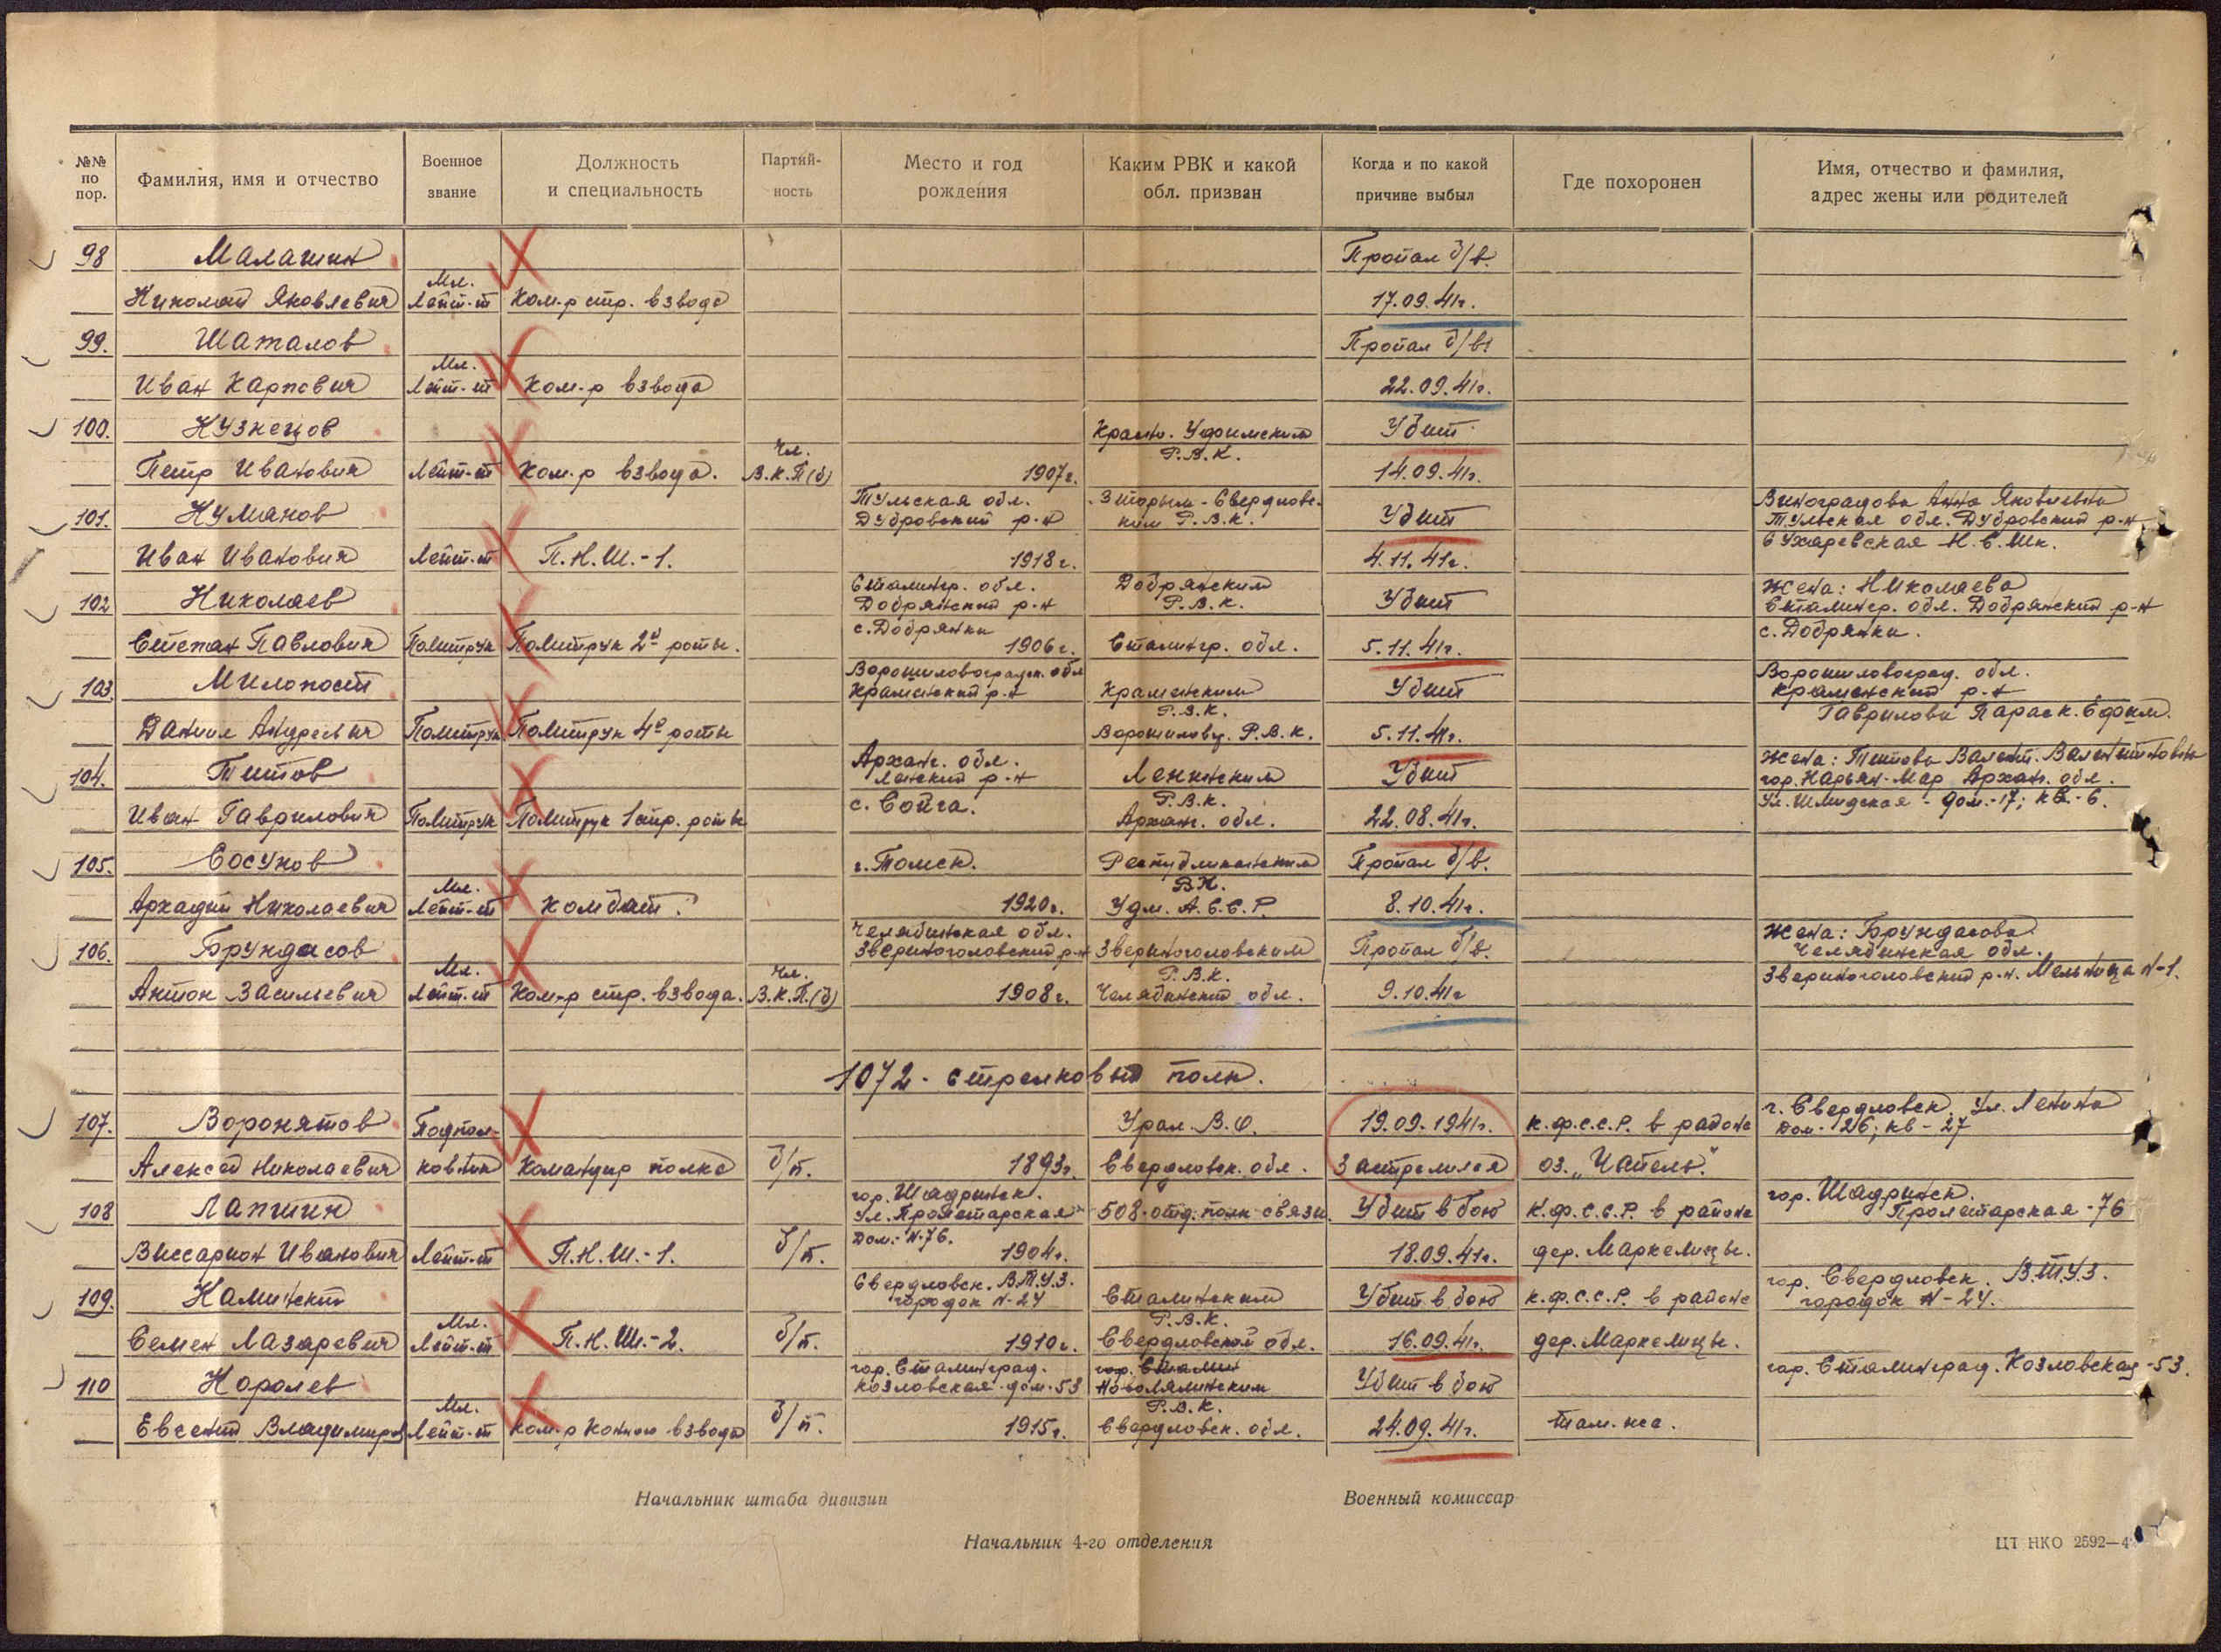 №№ по пор.
Фамилия, имя и отчество
Военное звание
Должность и специальность
Партий-ность
Место и год рождения
Каким РВК и какой обл. призван
Когда и по какой причине выбыл
Где похоронен
Имя, отчество и фамилия, адрес жены или родителей
98 Малашин Пропал б/в.
Николай Яковлевич Мл. Лейт-т Ком-р стр. взвода 17.09.41г.
99. Шаталов Пропал б/в.
Иван Карпович Мл. Лейт-т Ком-р взвода 22.09.41г.
100. Кузнецов Красно-Уфимским Р.В.К. Убит
Петр Иванович Лейт-т Ком-р взвода. Чл. В.К.П(б) 1907г. 14.09.41г.
101. Куманов Тульская обл. Дубровский р-н Вторым-Свердловс-ким Р.В.К. Убит Виноградова Анна Яковлевна Тульская обл. Дубровский р-н
Иван Иванович Лейт-т П.Н.Ш.-1. 1918г. 4.11.41г. Сухаревская Н.С.Шк.
102 Николаев Сталингр. обл. Добрянский р-н Добрянским Р.В.К. Убит Жена: Николаева Сталингр. обл. Добрянский р-н
Степан Павлович Политрук Политрук 2й роты. с. Добрянки 1906г. Сталингр. обл. 5.11.41г. с. Добрянки.
103. Милопост Ворошиловоградск. обл Краменский р-н Краменским Р.В.К. Убит Ворошиловград. обл. Краменский р-н
Даниил Андреевич Политрук Политрук 4й роты Ворошиловг. Р.В.К. 5.11.41г. Гаврилова Параск. Ефим.
104. Титов Арханг. обл. Ленский р-н Ленинским Р.В.К. Убит Жена: Титова Валент. Валентиновна гор. Нарьян-Мар Архан. обл.
Иван Гаврилович Политрук Политрук 1 стр. роты с. Сойга. Арханг. обл. 22.08.41г. Ул. Шмидская - дом.-17; кв.-6.
105. Сосунов г. Томск. Республиканским ВК. Пропал б/в.
Аркадий Николаевич Мл. Лейт-т Комбат. 1920г. Удм. А.С.С.Р. 8.10.41г.
106. Брундасов Челябинская обл. Звериноголовский р-н Звериноголовским Р.В.К. Пропал б/в. Жена: Брундасова Челябинская обл.
Антон Васильевич Мл. Лейт-т Ком-р стр. взвода. Чл. В.К.П.(б) 1908г. Челябинской обл. 9.10.41г Звериноголовский р-н. Мельница N-1.
1072 - стрелковый полк.
107. Воронятов Подпол- Урал. В.О. 19.09.1941г. К.Ф.С.С.Р. в районе г. Свердловск, Ул. Ленина Дом-26; кв-27
Алексей Николаевич ковник Командир полка б/п. 1893г. Свердловск. обл. Застрелился оз. „Чапель."
108 Лапшин гор. Шадринск. Ул. Пролетарская 508-отд. полк связи. Убит в бою К.Ф.С.С.Р. в районе гор. Шадринск. Пролетарская-76
Виссарион Иванович Лейт-т П.Н.Ш.-1. б/п. Дом.-N-76. 1904г. 18.09.41г. дер. Маркелицы.
109. Каминский Свердловск. В.Т.У.З. городок N-24 Сталинским Р.В.К. Убит в бою К.Ф.С.С.Р. в районе гор. Свердловск. В.Т.У.З. городок N-24.
Семен Лазаревич Мл. Лейт-т П.Н.Ш.-2. б/п. 1910г. Свердловской обл. 16.09.41г. дер. Маркелицы.
110 Королев гор. Сталинград. Козловская-дом-53 гор. Сталин Новолялинским Р.В.К. Убит в бою гор. Сталинград. Козловская-53.
Евгений Владимиров Мл. Лейт-т Ком-р Конного взвода б/п. 1915г. Свердловск. обл. 24.09.41г. там-же.
Начальник штаба дивизии
Военный комиссар
Начальник 4-го отделения
ЦТ НКО 2592—4